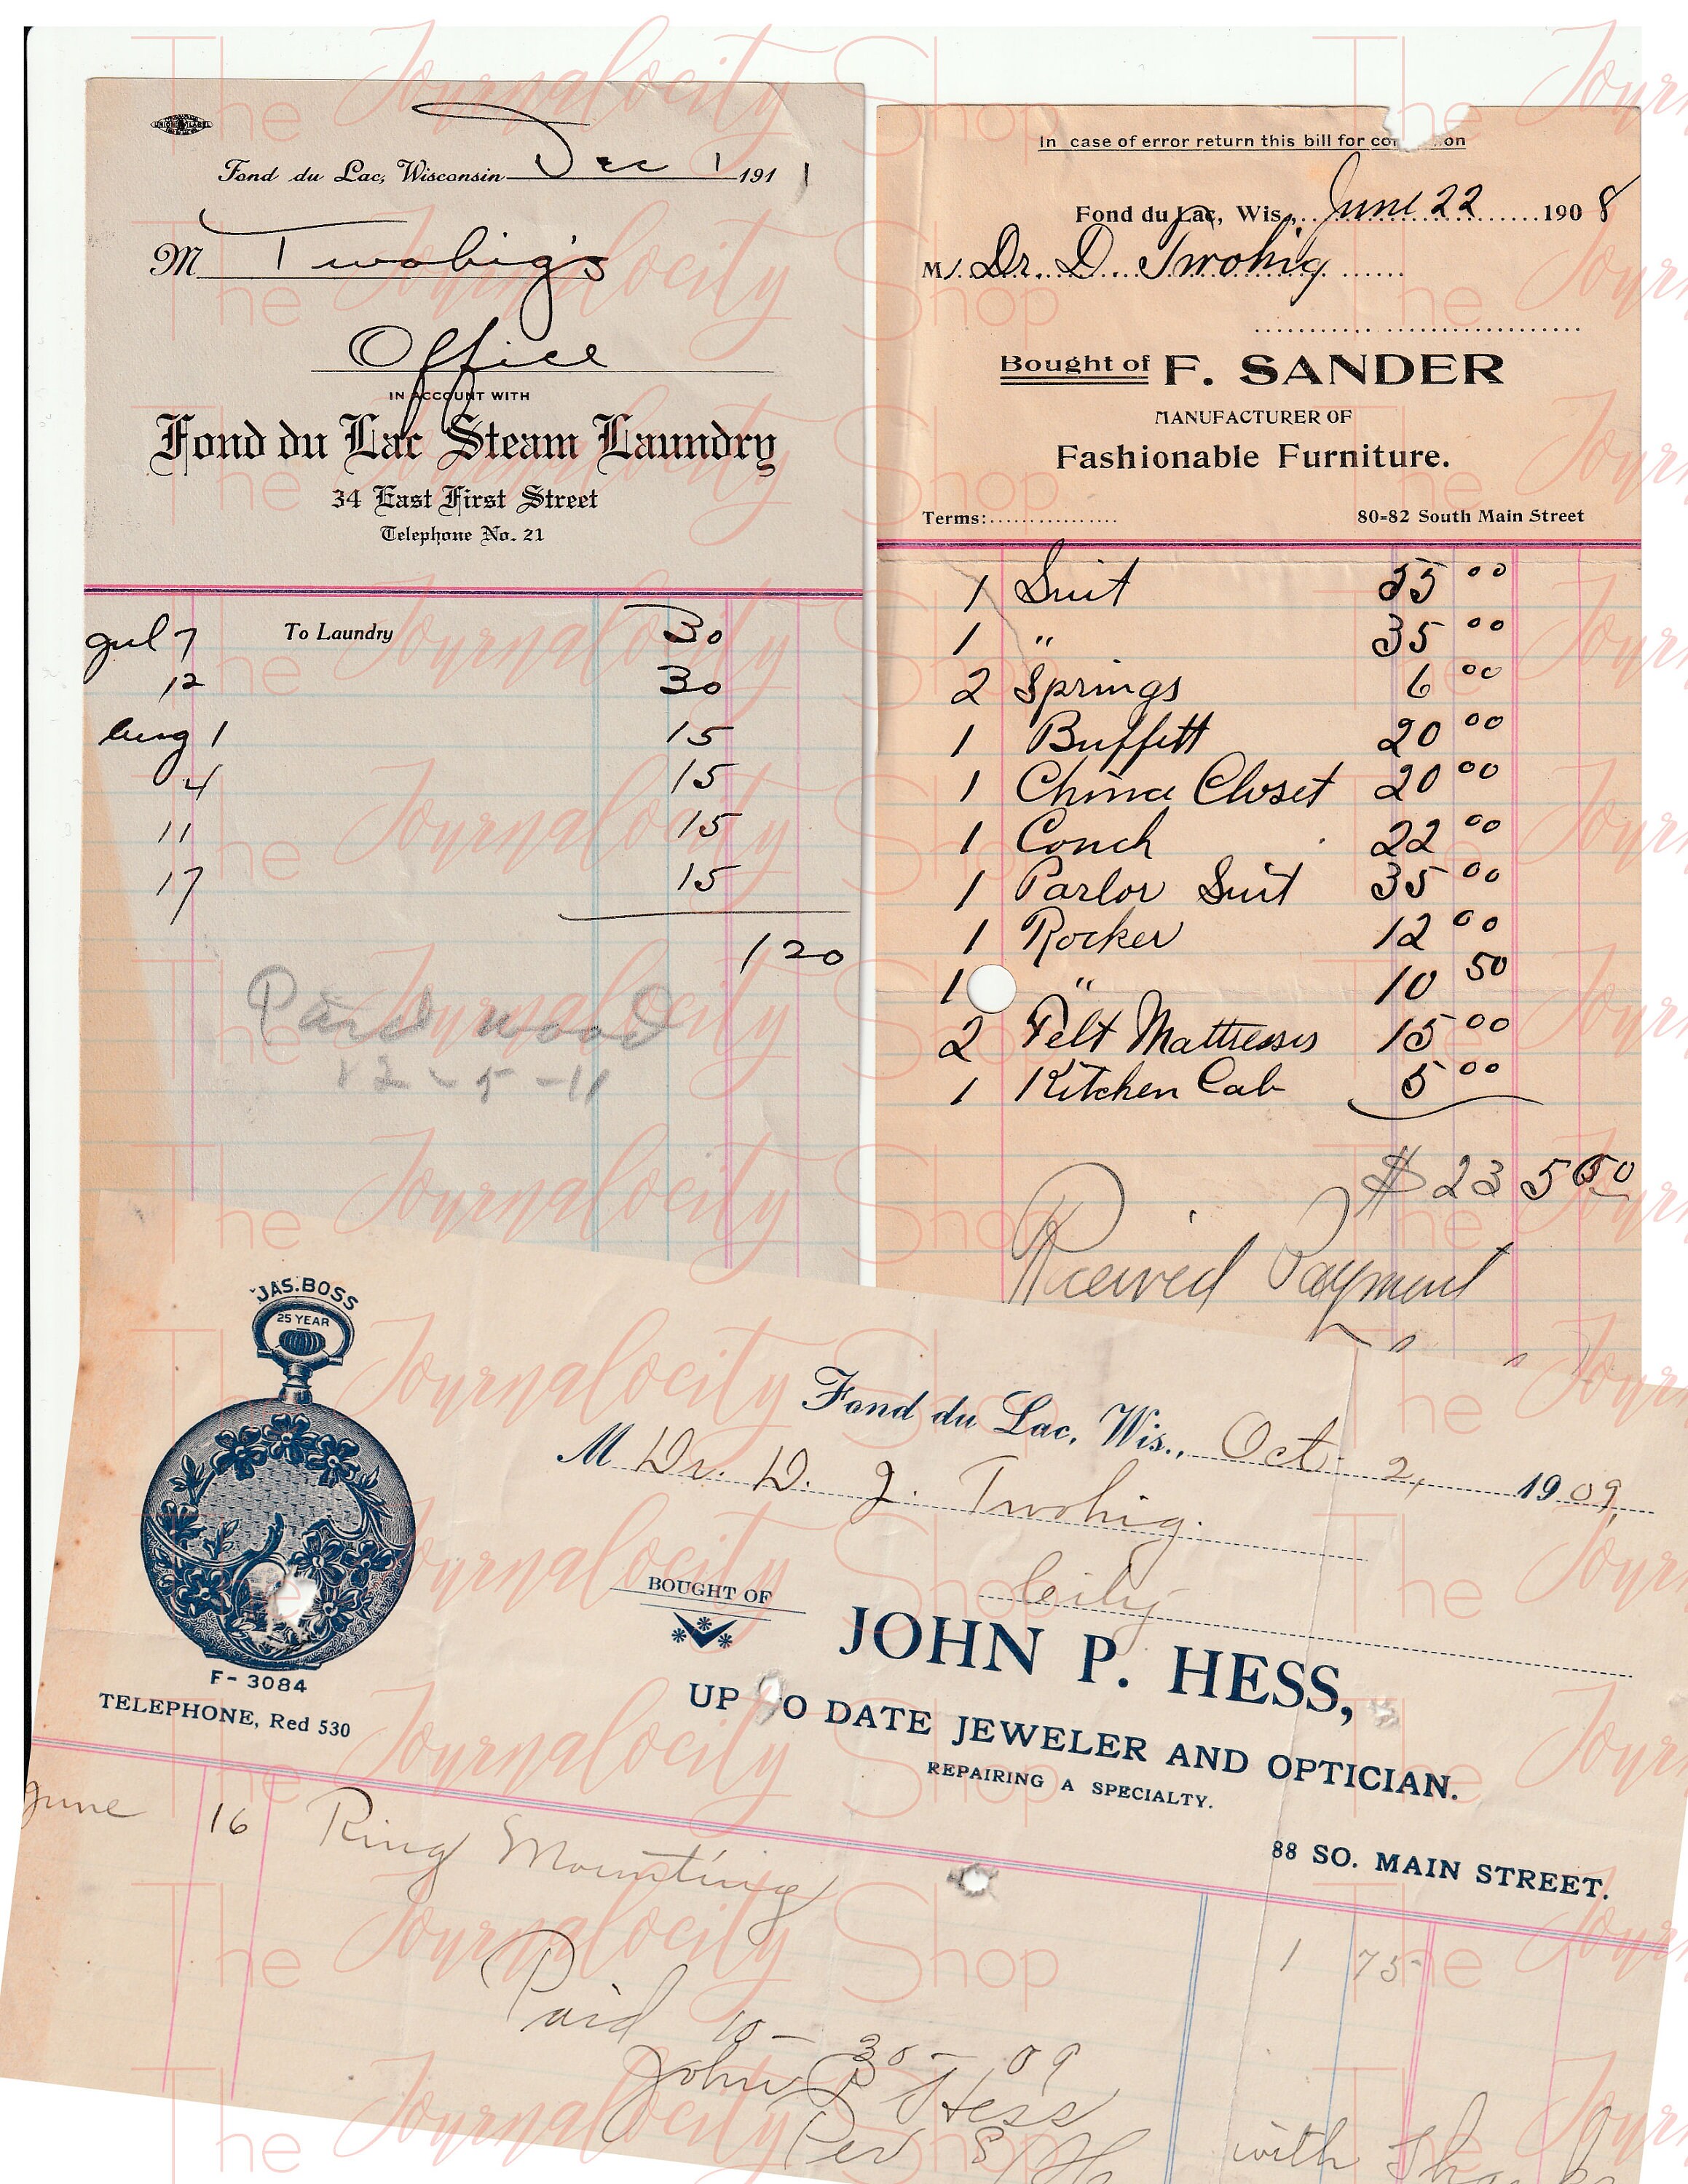 UNION LABEL
Fond du Lac, Wisconsin Dec 1 191 1
M Twohig's
Office
IN ACCOUNT WITH
Fond du Lac Steam Laundry
34 East First Street
Telephone No. 21
Jul 7 To Laundry 30
12 30
Aug 1 15
4 15
11 15
17 15
1 20
Paid wood
12-5-11
In case of error return this bill for co on
Fond du Lac, Wis., June 22 190 8
M Dr. D. Twohig
Bought of F. SANDER
MANUFACTURER OF
Fashionable Furniture.
Terms: 80-82 South Main Street
1 Suit 55 00
1 " 35 00
2 Springs 6 00
1 Buffett 20 00
1 China Closet 20 00
1 Couch 22 00
1 Parlor Suit 35 00
1 Rocker 12 00
1 " 10 50
2 Felt Mattresses 15 00
1 Kitchen Cab 5 00
$ 235 50
Received Payment
JAS. BOSS
25 YEAR
F-3084
TELEPHONE, Red 530
Fond du Lac, Wis., Oct. 2, 1909,
M Dr. D. J. Twohig.
City
BOUGHT OF
JOHN P. HESS,
UP TO DATE JEWELER AND OPTICIAN.
REPAIRING A SPECIALTY.
88 SO. MAIN STREET.
June 16 Ring Mounting
1 75
Paid 10-30-09
John P Hess
Per with
The Journalocity Shop